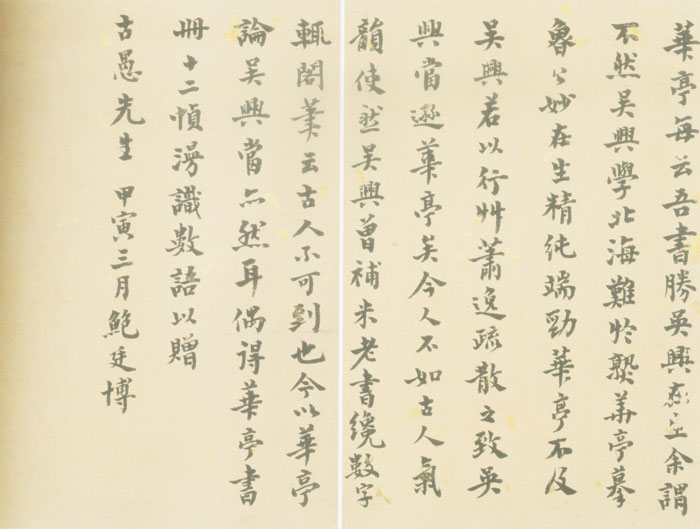 華亭每云吾書勝吳興余謂
不然吳興學北海難於槷華亭摹
魯公妙在生精純端勁華亭不及
吳興若以行艸蕭逸疏散之致吳
興當遜華亭矣今人不如古人氣
韻使然吳興曾補米老書纔數字
輒閣筆云古人不可到也今以華亭
論吳興當亦然耳偶得華亭書
冊十二幀漫識數語以贈
古愚先生 甲寅三月鮑廷博